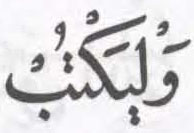 وَلْيَكْتُبْ